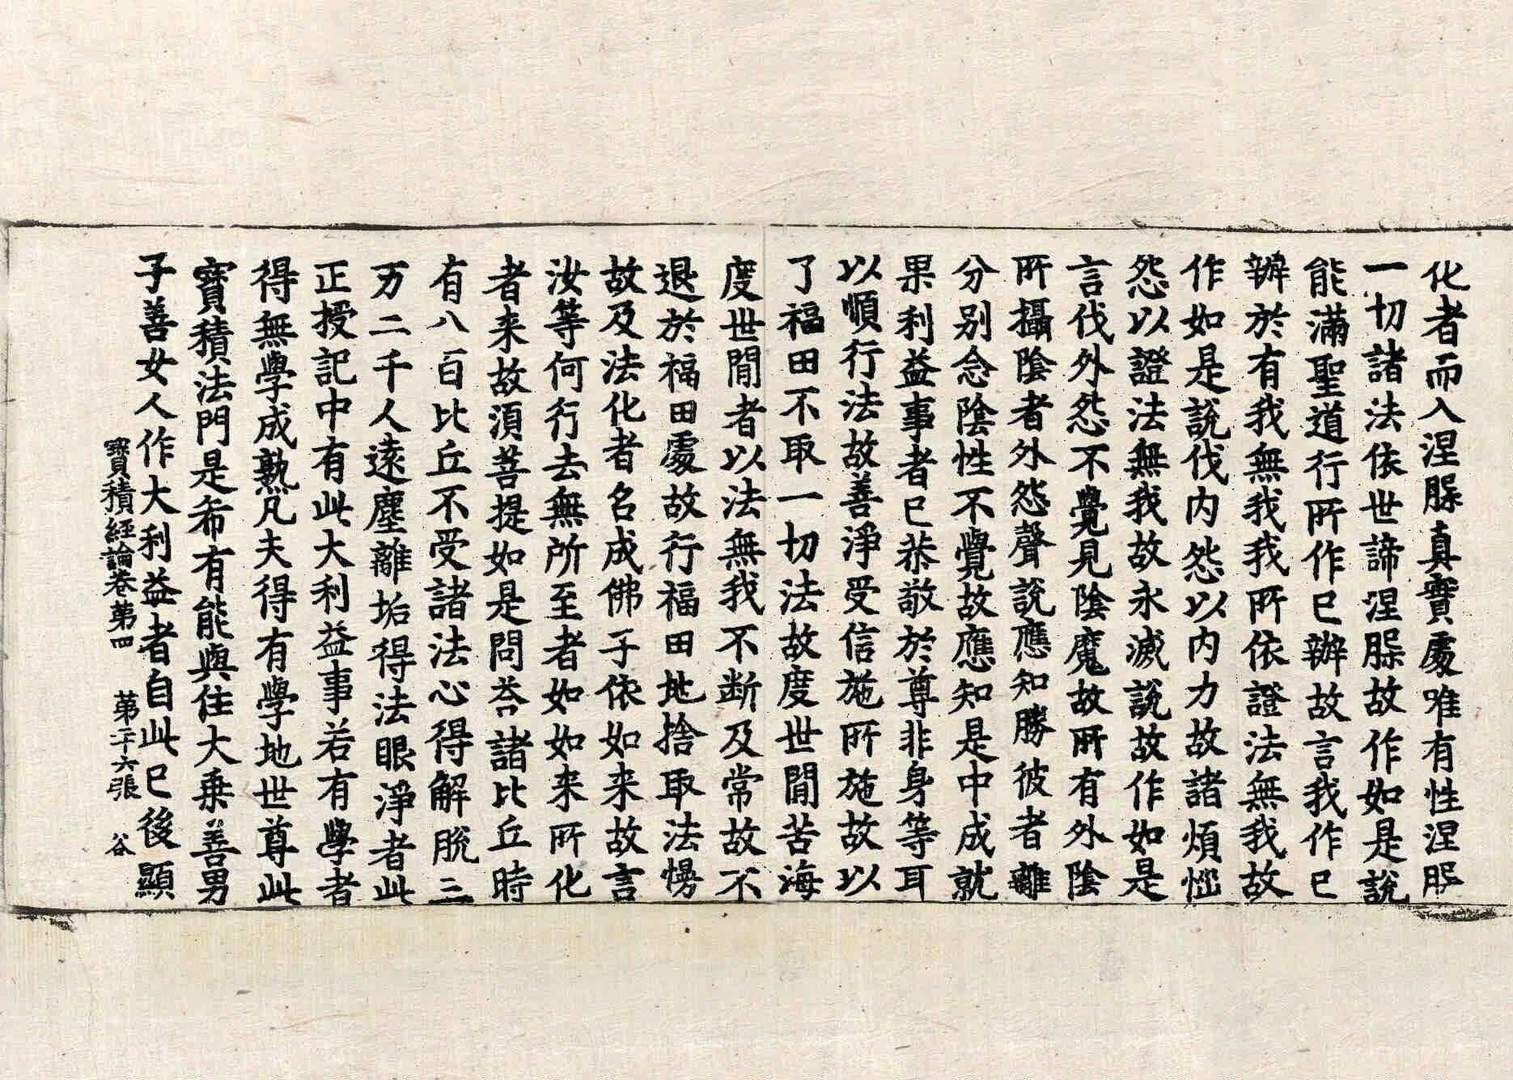 化者而入涅槃真實處唯有性涅槃
一切諸法依世諦涅槃故作如是說
能滿聖道行所作已辦故言我作已
辦於有我無我我所依證法無我故
作如是說伐內怨以內力故諸煩惱
怨以證法無我故永滅說故作如是
言伐外怨不覺見陰魔故所有外陰
所攝陰者外怨聲說應知勝彼者離
分別念陰性不覺故應知是中成就
果利益事者已恭敬於尊非身等耳
以順行法故善淨受信施所施故以
了福田不取一切法故度世間苦海
度世間者以法無我不断及常故不
退於福田處故行福田地捨取法慢
故及法化者名成佛子依如来故言
汝等何行去無所至者如如来所化
者来故須菩提如是問荅諸比丘時
有八百比丘不受諸法心得解脫三
万二千人遠塵離垢得法眼淨者此
正授記中有此大利益事若有學者
得無學成熟凡夫得有學地世尊此
寶積法門是希有能與住大乗善男
子善女人作大利益者自此已後顯
寶積經論卷第四 第二十六張 谷